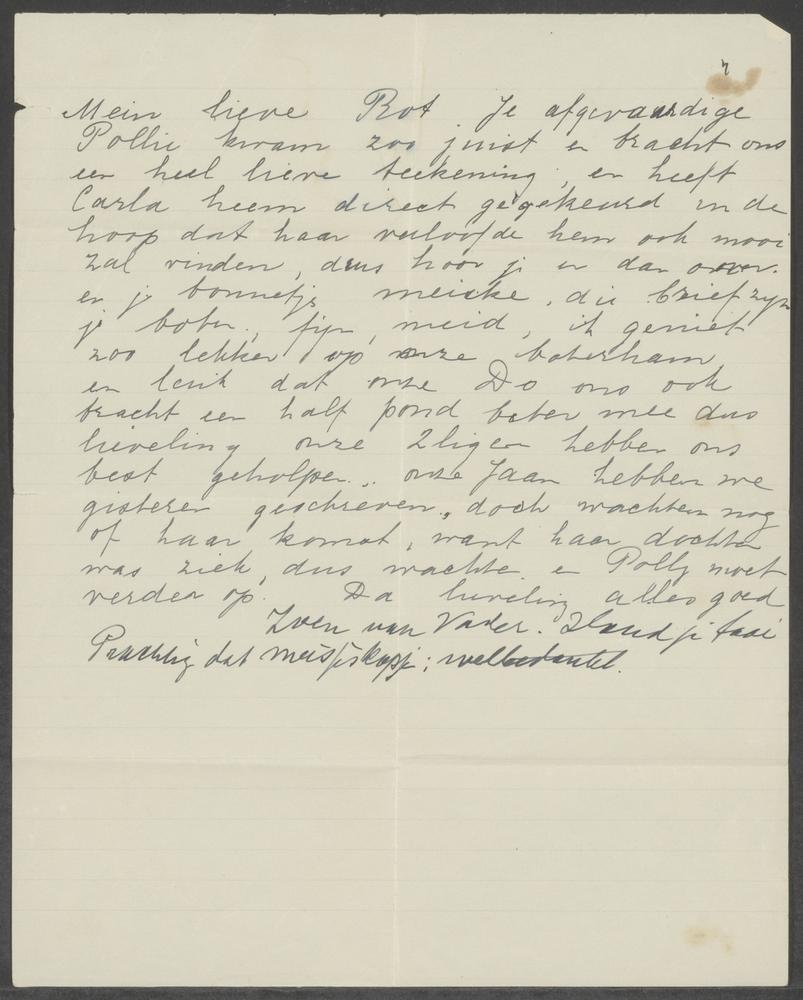 Mein lieve Rot Je afgevaardige
Pollie kwam zoo juist en bracht ons
een heel lieve teekening, en heeft
Carla heem direct gegekeurd in de
hoop dat haar verloofde hem ook mooi
zal vinden, dus hoor je er dan over.
en je bonnetje meiske, die brief zijn
je boter, fijn, meid, ik geniet
zoo lekker op onze boterham
en leuk dat onze Do ons ook
bracht een half pond boter mee dus
lieveling onze 2ligen hebben ons
best geholpen.. onze Jaan hebben we
gisteren geschreven, doch wachten nog
of haar komst, want haar dochter
was ziek, dus wachte en Polly moet
verder op. Da lieveling alles goed
Zoen van Vader. Houd je taai
Prachtig dat meisjeskopje; welbedankt.